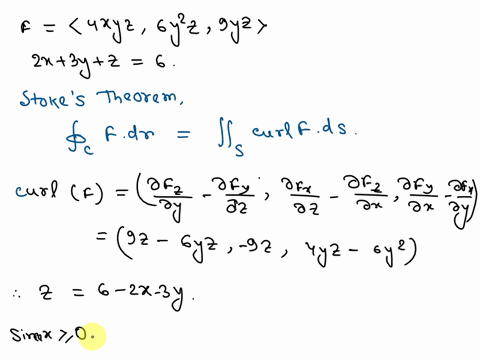 F = < 4xyz, 6y²z, 9yz>
2x+3y+z = 6.
Stoke's Theorem,
∮_C F.dr = ∬_S curl F.ds.
curl (F) = (∂F_z/∂y - ∂F_y/∂z, ∂F_x/∂z - ∂F_z/∂x, ∂F_y/∂x - ∂F_x/∂y)
= (9z - 6yz, -9z, 4yz - 6y²)
∴ z = 6-2x-3y.
x ≥ 0.